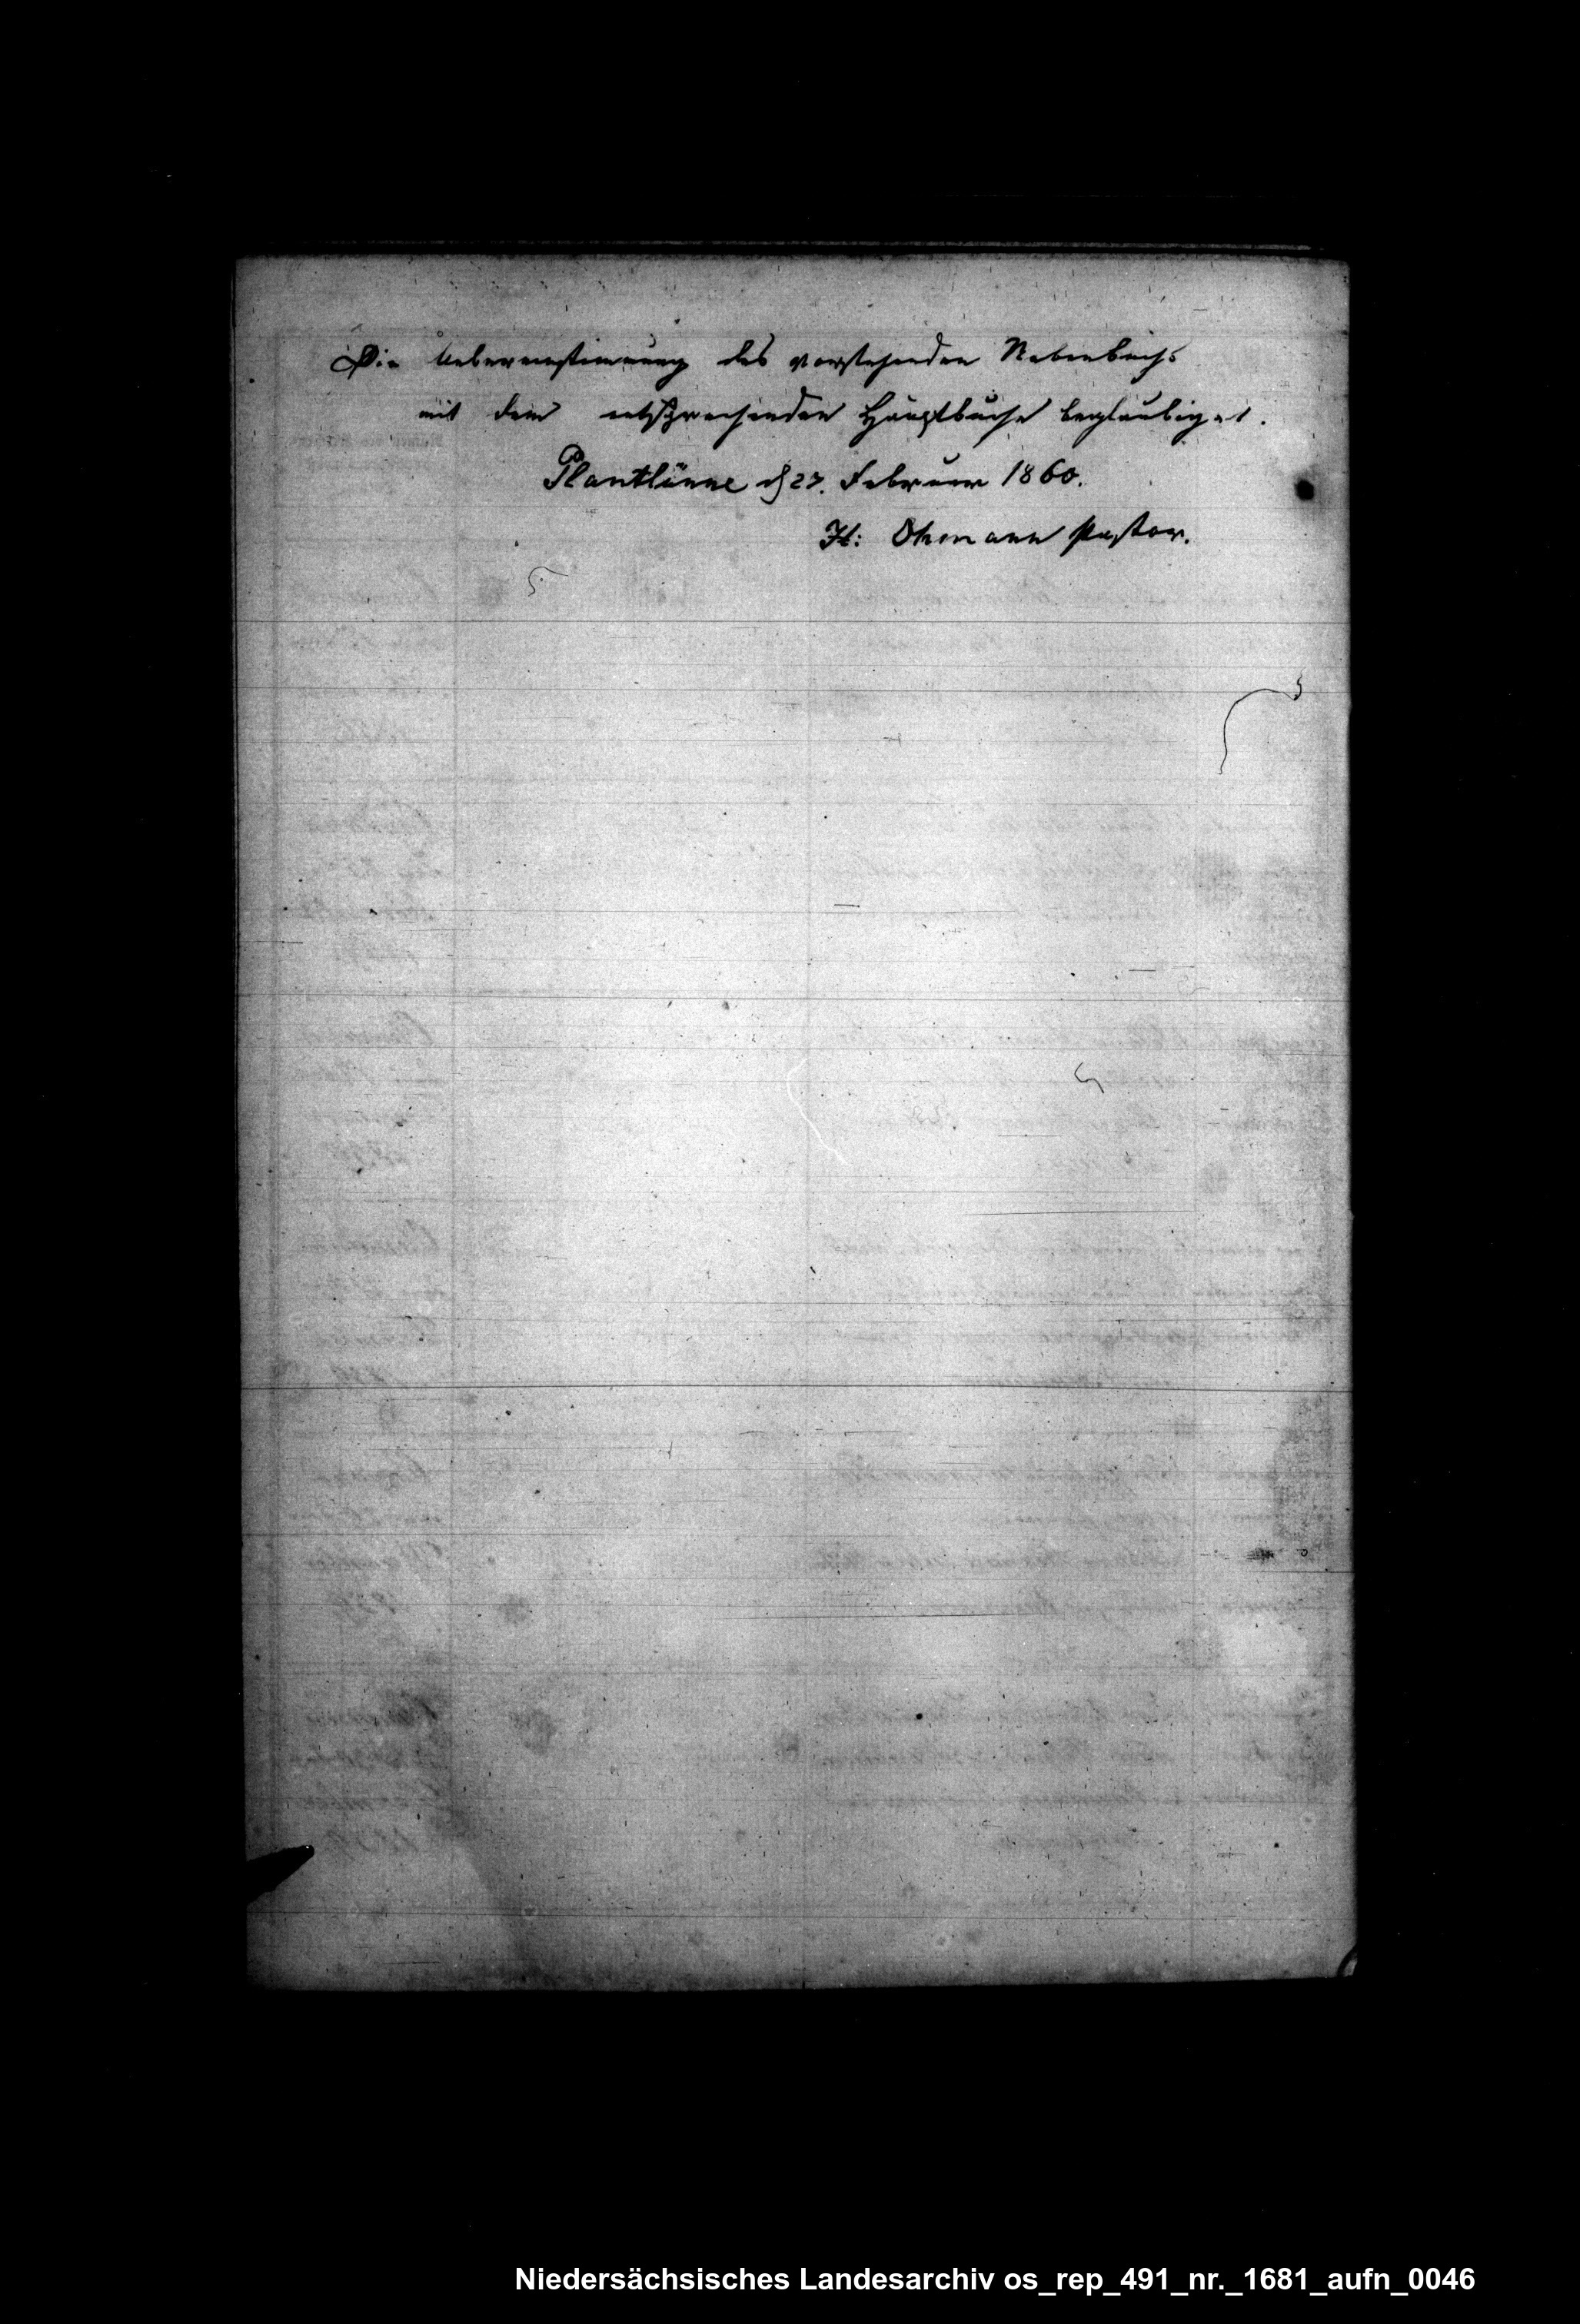 Die Uebereinstimmung des vorstehenden Nebenbuchs
mit dem entsprechenden Hauptbuche beglaubiget.
Plantlünne d 27. Februar 1860.
H: Ohmann Pastor.
Niedersächsisches Landesarchiv os_rep_491_nr._1681_aufn_0046